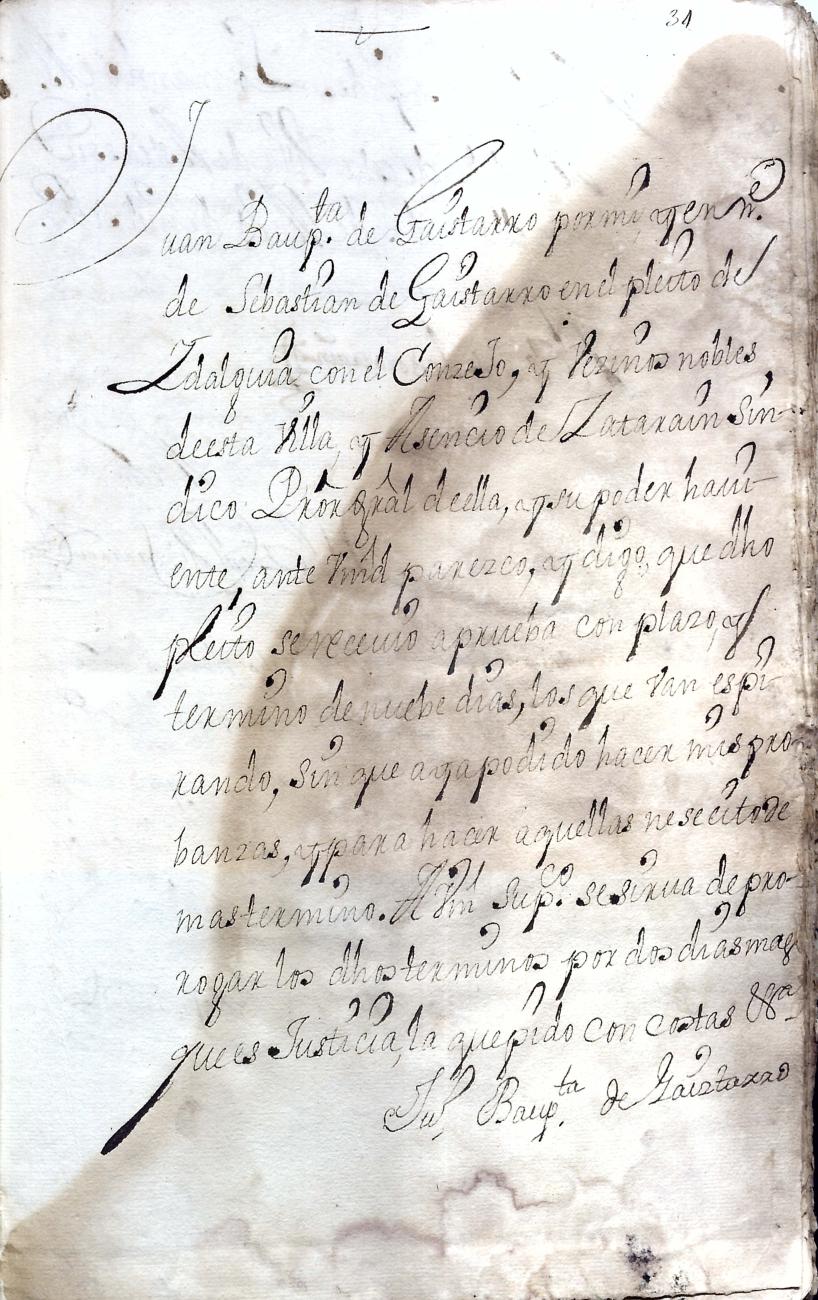 31
Juan Baup.ta de Gaistarro por mi, y en n.e
de Sebastian de Gaistarro en el pleito de
Idalguia con el Conzejo, y Vezinos nobles
de esta Villa, y Asencio de Zatarain Sin-
dico Pror gràl de ella, y su poder haui-
ente, ante Vmd parezco, y digo, que dho
pleito se receuio a prueba con plazo, y
termino de nuebe dias, los que Van espi-
rando, sin que aya podido hacer mis pro-
banzas, y para hacer aquellas nesecito de
mas termino. A Vm sup.co se sirua de pro-
rogar los dhos terminos por dos dias mas
que es Justicia, la que pido con costas &&a
Ju.n Baup.ta de Gaiztarro